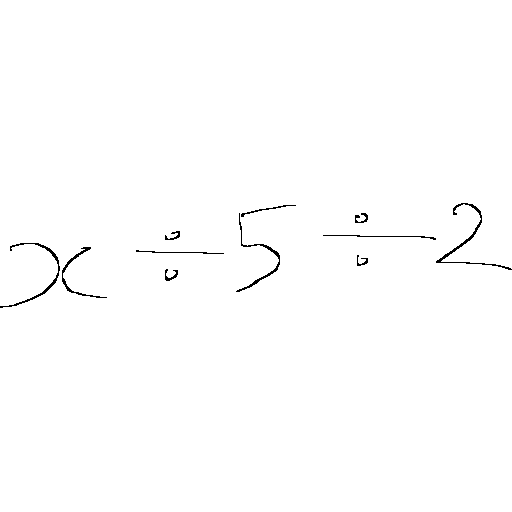 x ÷ 5 ÷ 2